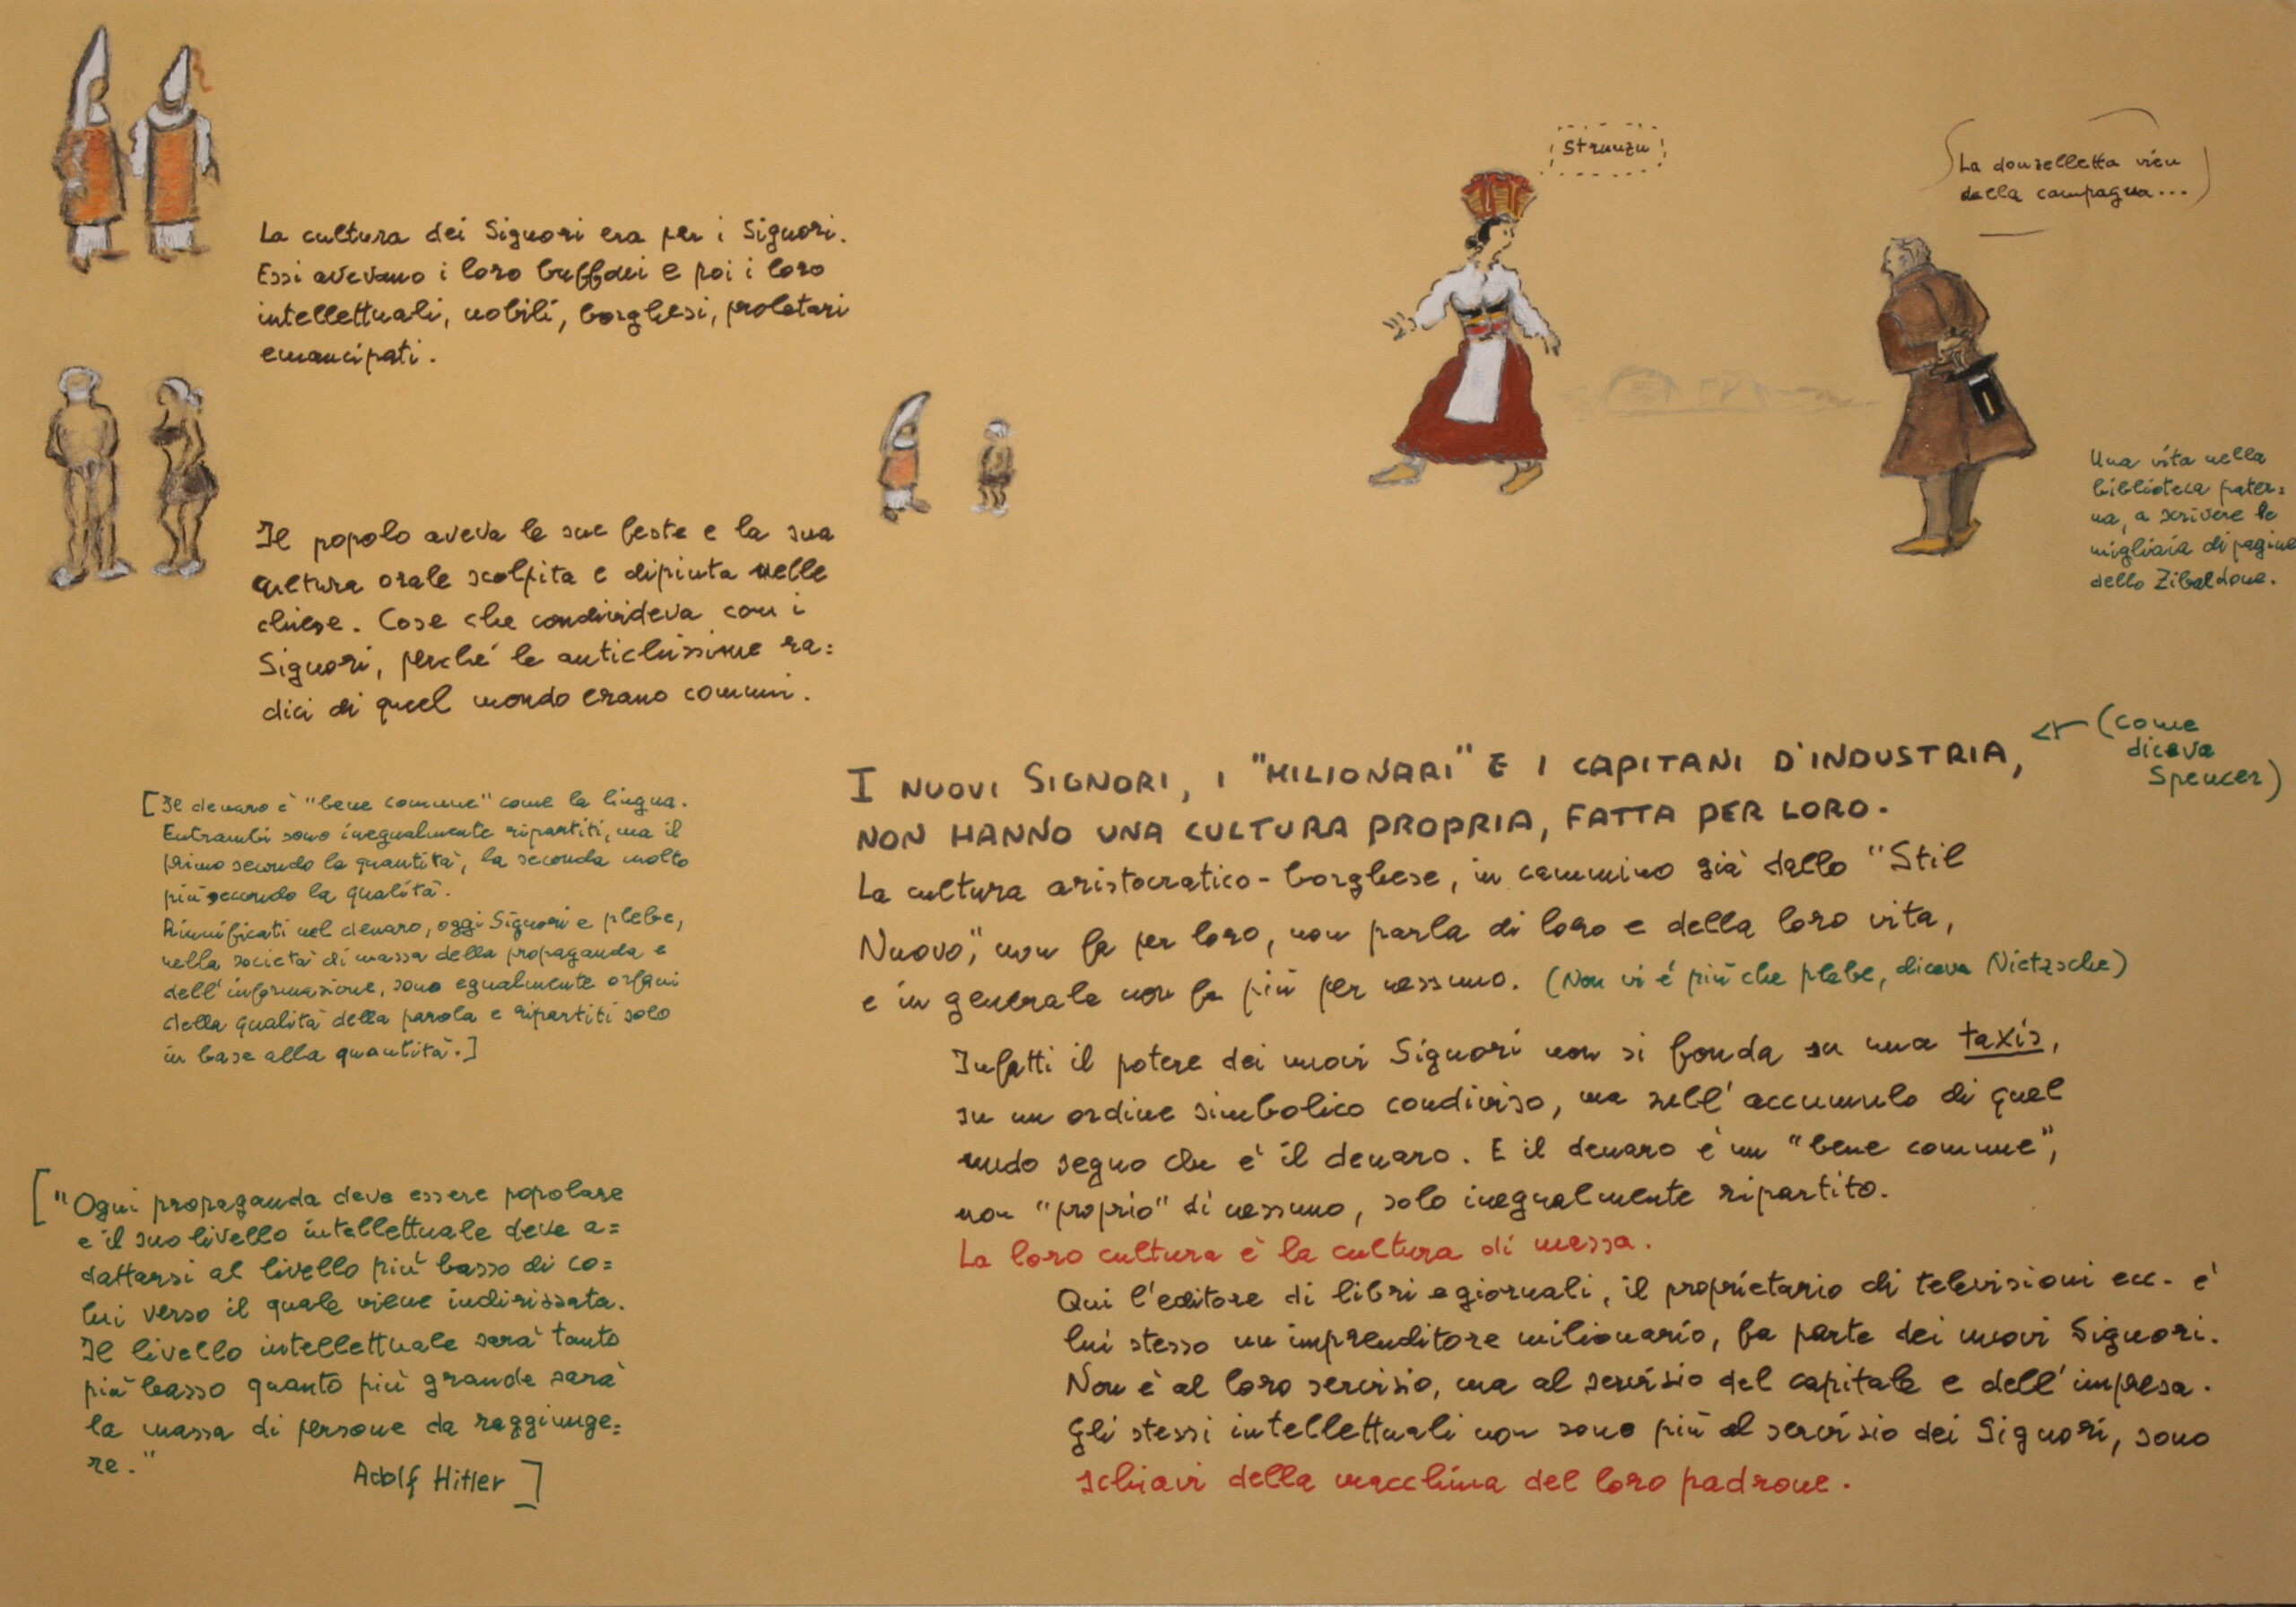 La cultura dei Signori era per i Signori.
Essi avevano i loro buffoni e poi i loro
intellettuali, nobili, borghesi, proletari
emancipati.
Il popolo aveva le sue feste e la sua
cultura orale scolpita e dipinta nelle
chiese. Cose che condivideva con i
Signori, perché le antichissime ra=
dici di quel mondo erano comuni.
[Il denaro è "bene comune" come la lingua.
Entrambi sono inegualmente ripartiti, ma il
primo secondo la quantità, la seconda molto
più secondo la qualità.
Riunificati nel denaro, oggi Signori e plebe,
nella società di massa della propaganda e
dell'informazione, sono egualmente orfani
della qualità della parola e ripartiti solo
in base alla quantità.]
["Ogni propaganda deve essere popolare
e il suo livello intellettuale deve a=
dattarsi al livello più basso di co=
lui verso il quale viene indirizzata.
Il livello intellettuale sarà tanto
più basso quanto più grande sarà
la massa di persone da raggiunge=
re."
Adolf Hitler]
Strunzu
La donzelletta vien
dalla campagna...
Una vita nella
biblioteca pater=
na, a scrivere le
migliaia di pagine
dello Zibaldone.
I NUOVI SIGNORI, I "MILIONARI" E I CAPITANI D'INDUSTRIA,
(come
diceva
Spencer)
NON HANNO UNA CULTURA PROPRIA, FATTA PER LORO.
La cultura aristocratico-borghese, in cammino già dallo "Stil
Nuovo", non fa per loro, non parla di loro e della loro vita,
e in generale non fa più per nessuno. (Non vi è più che plebe, diceva Nietzsche)
Infatti il potere dei nuovi Signori non si fonda su una taxis,
su un ordine simbolico condiviso, ma sull'accumulo di quel
nudo segno che è il denaro. E il denaro è un "bene comune",
non "proprio" di nessuno, solo inegualmente ripartito.
La loro cultura è la cultura di massa.
Qui l'editore di libri e giornali, il proprietario di televisioni ecc. è
lui stesso un imprenditore milionario, fa parte dei nuovi Signori.
Non è al loro servizio, ma al servizio del capitale e dell'impresa.
Gli stessi intellettuali non sono più al servizio dei Signori, sono
schiavi della macchina del loro padrone.